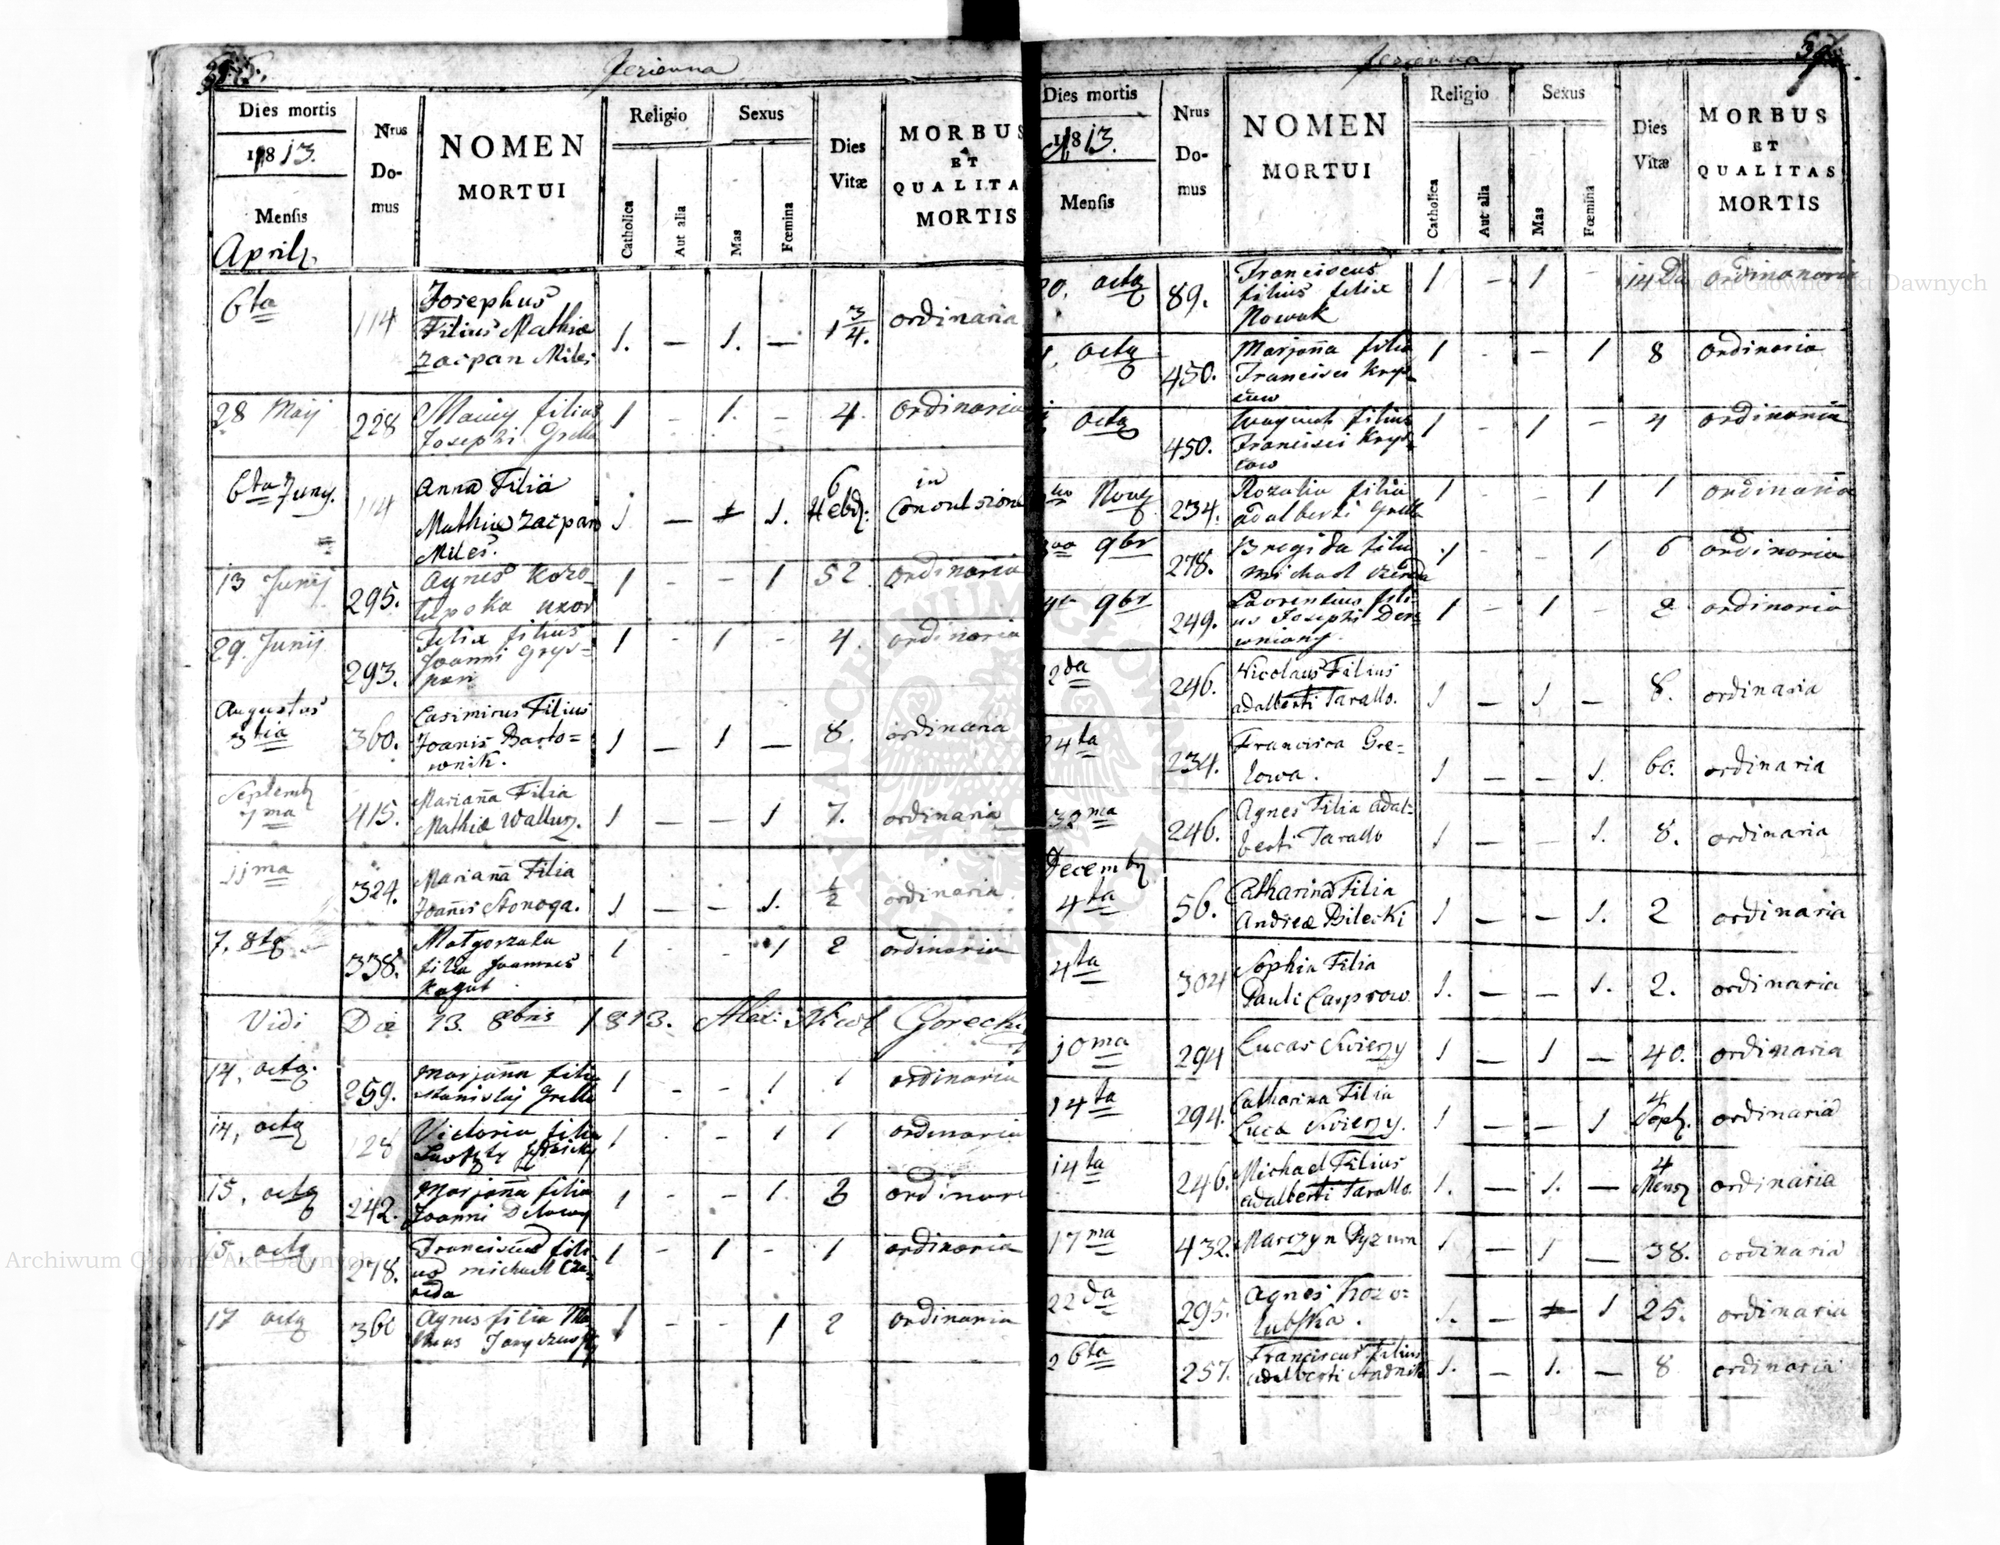 Jezienna
Dies mortis
1813.
Mensis
Aprilz.
Nrus
Do-
mus
NOMEN
MORTUI
Religio
Catholica
Aut alia
Sexus
Mas
Fœmina
Dies
Vitæ
MORBUS
ET
QUALITA
MORTIS
6ta 114 Josephus
Filius Mathiæ
Zacpan Miles 1. — 1. — 1 3/4. ordinaria
28 Maij 228 Maciey filius
Josephi Grella 1 - 1. - 4. ordinaria
6ta Juny. 114 Anna Filia
Mathiæ Zacpan
Miles. 1 — 1. 6 Hebd: in Convulsione
13 Junij 295. Agnes Kozo-
lupska uxor 1 - - 1 52 ordinaria
29. Junij 293. Felix filius
Joanni Grys=
pan 1 - 1 - 4. ordinaria
Augustus
3tia 360. Casimirus Filius
Joanis Barto=
wnik. 1 — 1 — 8. ordinaria
Septembr
7ma 415. Marianna Filia
Mathiæ Walluz. 1 — — 1 7. ordinaria
11ma 324. Marianna Filia
Joannis Stonoga. 1 — — 1. 1/2 ordinaria
7. 8ta 338. Małgorzata
filia Joannes
Kogut 1 - - 1 2 ordinaria
Vidi Die 13. 8bris 1813. Alex: Nicol Gorecki
14, octa. 259. Marjanna filia
Stanislaj Grella 1 - - 1 1 ordinaria
14, octa 128 Victoria filia
1 - - 1 1 ordinaria
15, octa 242. Marjanna filia
Joanni 1 - - 1. 3 ordinari
15, octa 278. Franciscus fili-
us michael Cze-
reda 1 - 1 - 1 ordinaria
17 octa 360 Agnes filia Ma
theus 1 - - 1 2 ordinaria
Jezienna
Dies mortis
1813.
Mensis
Nrus
Do-
mus
NOMEN
MORTUI
Religio
Catholica
Aut alia
Sexus
Mas
Fœmina
Dies
Vitæ
MORBUS
ET
QUALITAS
MORTIS
20, octa 89. Franciscus
filius felix
Nowak 1 - 1 - 14 Da ordinaria
octa 450. Marjanna filia
Francisci Krys-
1 - — 1 8 ordinaria
octa 450. filius
Francisci Krys-
1 — 1 — 4 ordinaria
Nove 234. Rozalia filia
adalberti Grella 1 - - 1 1 ordinaria
9br 278. Bregida filia
michael czereda 1 - - 1 6 ordinaria
9br 249. Laurentius fili-
us Josephi Der
wniany. 1 - 1 - 2 ordinaria
22da 246. Nicolaus Filius
adalberti Tarallo. 1 — 1 — 8. ordinaria
24ta 234. Francisca Gre=
lowa. 1 — — 1. 60. ordinaria
30ma 246. Agnes Filia adal=
berti Tarallo 1 — — 1. 8. ordinaria
Decembr
4ta 56. Catharina Filia
Andreæ Bilecki 1 — — 1. 2 ordinaria
4ta 304 Sophia Filia
Pauli Casprow. 1. — — 1. 2. ordinaria
10ma 294 Lucas Swierzy 1 — 1 — 40. ordinaria
14ta 294. Catharina Filia
Lucæ Swierzy. 1 — — 1 4 Sept. ordinaria
14ta 246. Michael Filius
adalberti Tarallo. 1. — 1. — 4 Mens ordinaria
17ma 432. Marczyn Pyzura 1 — 1 — 38. ordinaria
22da 295. Agnes Kozo=
lubska. 1. — 1 25. ordinaria
26ta 257. Franciscus Filius
adalberti Andruk 1. — 1. — 8 ordinaria
ARCHIWUM GŁÓWNE AKT DAWNYCH
Archiwum Główne Akt Dawnych
Archiwum Główne Akt Dawnych